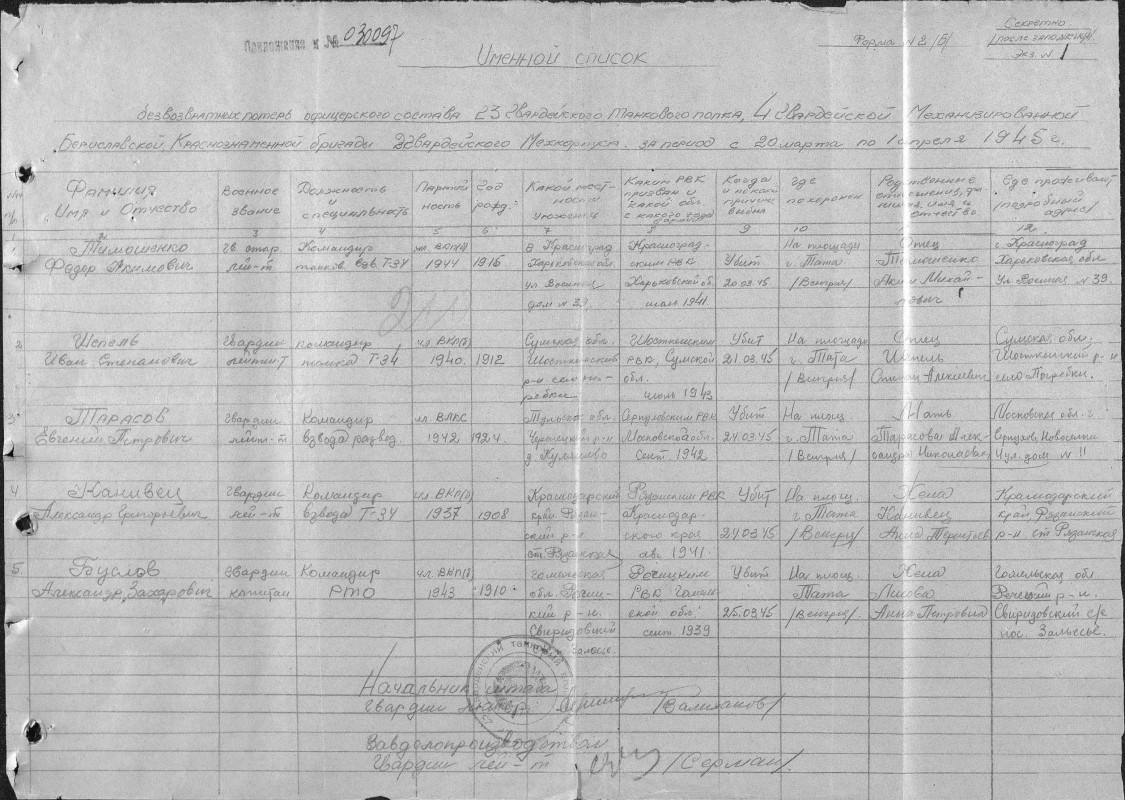 Приложение к № 030097
Секретно
/после заполнения/
Экз. № 1
Форма № 2/Б/
Именной список
безвозвратных потерь офицерского состава 23 Гвардейского Танкового полка, 4 Гвардейской Механизированной
Бериславской Краснознаменной бригады 2 Гвардейского Мехкорпуса. за период с 20 марта по 1 апреля 1945 г.
Фамилия Имя и Отчество
Военное звание
Должность и специальность
Партийность
Год рожд.
Какой местности уроженец
Каким РВК призван и какой обл. с какого года
Когда и по какой причине выбыл
Где похоронен
Родственные отношения, фамилия, имя и отчество
Где проживает /подробный адрес/
3 4 5 6 7 8 9 10 11 12
1 Тимошенко гв. стар. Командир чл. ВКП(б) г. Красноград Красноград- На площади Отец г. Красноград
Федор Акимович лей-т танков. взв. Т-34 1944 1915 Харьковская обл. ским РВК Убит г. Тата Тимошенко Харьковская обл.
ул Военная Харьковской об. 20.03.45 /Венгрия/ Аким Михай- ул. Военная № 39.
дом № 39 1941. лович
2 Шепель Гвардии командир чл. ВКП(б) Сумская обл. Шосткинским Убит На площади Отец Сумская обл.
Иван Степанович лейтен-т танка Т-34 1940. 1912 Шосткинский РВК, Сумской 21.03.45 г. Тата Шепель Шосткинский р-н
р-н село По- обл. /Венгрия/ Степан Алексеевич село Погребки.
гребки 1943
3 Тарасов гвардии Командир чл. ВЛКС Тульская обл. Серпуховским РВК Убит На площ. Мать Московская обл. г.
Евгений Петрович лейт-т взвода развед. 1942 1924. р-н Московской обл. 24.03.45 г. Тата Тарасова Алек- Серпухов
д. сент. 1942 /Венгрия/ сандра Николаевна ул. дом № 11
4 Канивец гвардии Командир чл. ВКП(б) Краснодарский Рязанским РВК Убит На площ. Жена Краснодарский
Александр Григорьевич лей-т взвода Т-34 1937 1908 край. Рязан- Краснодар- г. Тата Канивец край, Рязанский
ский р-н ского края 24.03.45 /Венгрия/ Анна р-н ст Рязанская
ст. Рязанская авг. 1941.
5. Буслов гвардии Командир чл. ВКП(б) Гомельская Речицким Убит На площ. Жена Гомельская обл
Александр Захарович капитан РТО 1943 1910 обл. Речиц- РВК Гомель- Тата Речицкий р-н.
кий р-н. ской обл. 25.03.45 /Венгрия/ Анна Петровна Свиридовский с/с
Свиридовский сент. 1939 пос. Залесье.
Залесье
Начальник штаба
Гвардии майор /Валиханов/
Завделопроизводством
Гвардии лей-т /Серман/